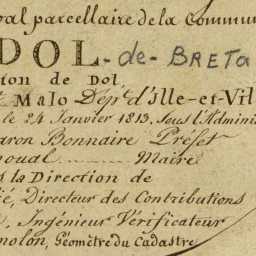 pal parcellaire de la Commun
DOL-de-BRETa
tion de Dol
t Malo Dépt d'Ille-et-Vil
le 24 Janvier 1813. Sous l'Admini
aron Bonnaire Préfet
noual Maire
s la Direction de
ié, Directeur des Contributions
, Ingénieur Vérificateur
nolon, Géomètre du Cadastre